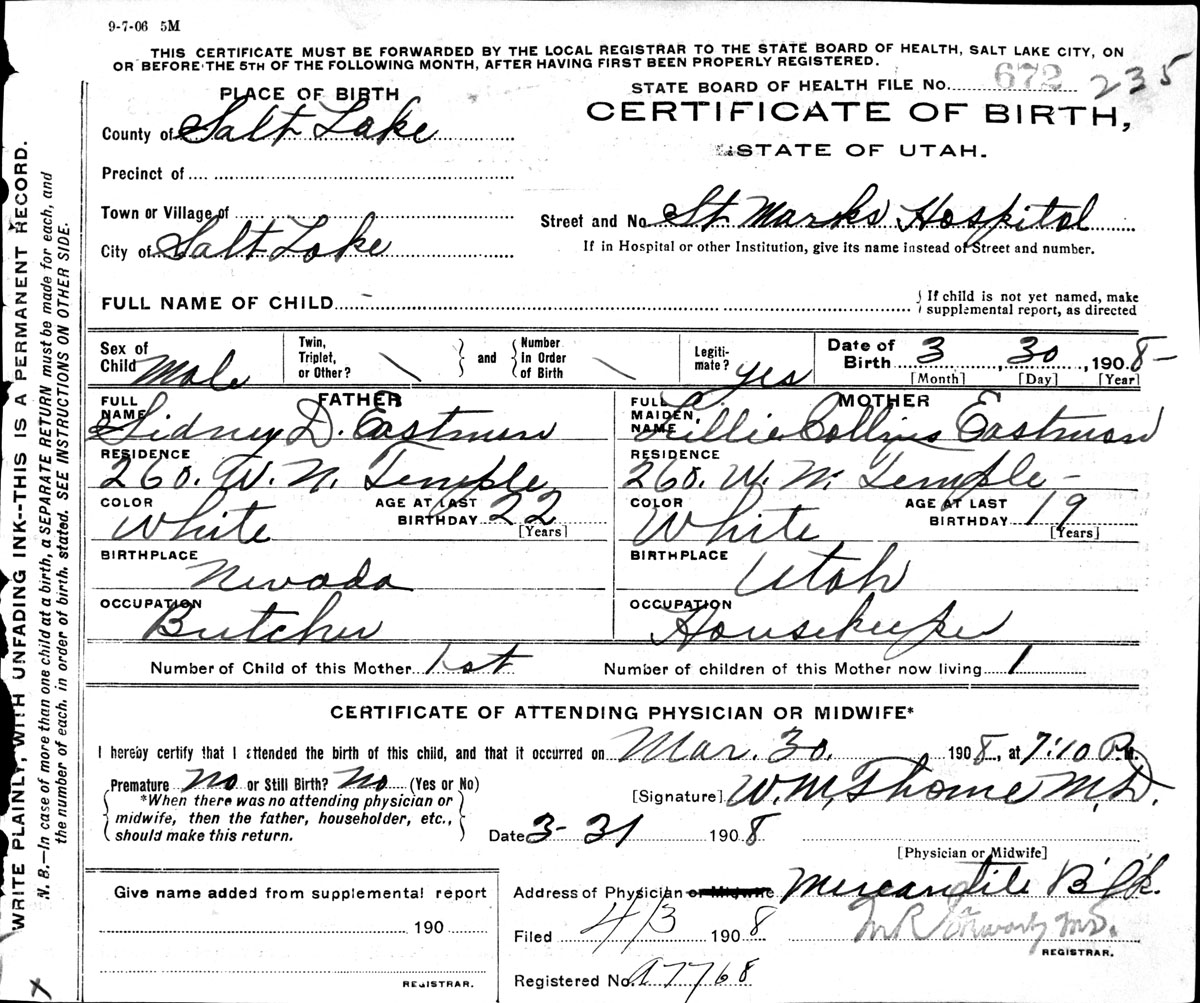 9-7-06 5M
THIS CERTIFICATE MUST BE FORWARDED BY THE LOCAL REGISTRAR TO THE STATE BOARD OF HEALTH, SALT LAKE CITY, ON
OR BEFORE THE 5TH OF THE FOLLOWING MONTH, AFTER HAVING FIRST BEEN PROPERLY REGISTERED.
STATE BOARD OF HEALTH FILE No. 672 235
CERTIFICATE OF BIRTH,
STATE OF UTAH.
PLACE OF BIRTH
County of Salt Lake
Precinct of
Town or Village of
City of Salt Lake
Street and No. St Marks Hospital
If in Hospital or other Institution, give its name instead of Street and number.
FULL NAME OF CHILD
{If child is not yet named, make
supplemental report, as directed
Sex of Child Male
Twin, Triplet, or Other?
and
Number In Order of Birth
Legiti-mate? yes
Date of Birth 3, 30, 1908-
[Month] [Day] [Year]
FATHER
FULL NAME Sidney D. Eastman
RESIDENCE
260. W. N. Temple
COLOR White
AGE AT LAST BIRTHDAY 22
[Years]
BIRTHPLACE
Nevada
OCCUPATION
Butcher
MOTHER
FULL MAIDEN NAME Lillie Collins Eastman
RESIDENCE
260. W. N. Temple-
COLOR White
AGE AT LAST BIRTHDAY 19
[Years]
BIRTHPLACE
Utah
OCCUPATION
Housekeeper
Number of Child of this Mother 1st
Number of children of this Mother now living 1
CERTIFICATE OF ATTENDING PHYSICIAN OR MIDWIFE*
I hereby certify that I attended the birth of this child, and that it occurred on Mar. 30. 1908, at 7:10 P.M.
Premature No or Still Birth? No (Yes or No)
*When there was no attending physician or
midwife, then the father, householder, etc.,
should make this return.
[Signature] W. M. Thorne M.D.
Date 3-31 1908
[Physician or Midwife]
Give name added from supplemental report
190
REGISTRAR.
Address of Physician or Midwife Mercantile B'l'k.
Filed 4/3 1908
M R Stewart M.D.
REGISTRAR.
Registered No. A7768
WRITE PLAINLY, WITH UNFADING INK--THIS IS A PERMANENT RECORD.
N. B.—In case of more than one child at a birth, a SEPARATE RETURN must be made for each, and
the number of each, in order of birth, stated. SEE INSTRUCTIONS ON OTHER SIDE.
X